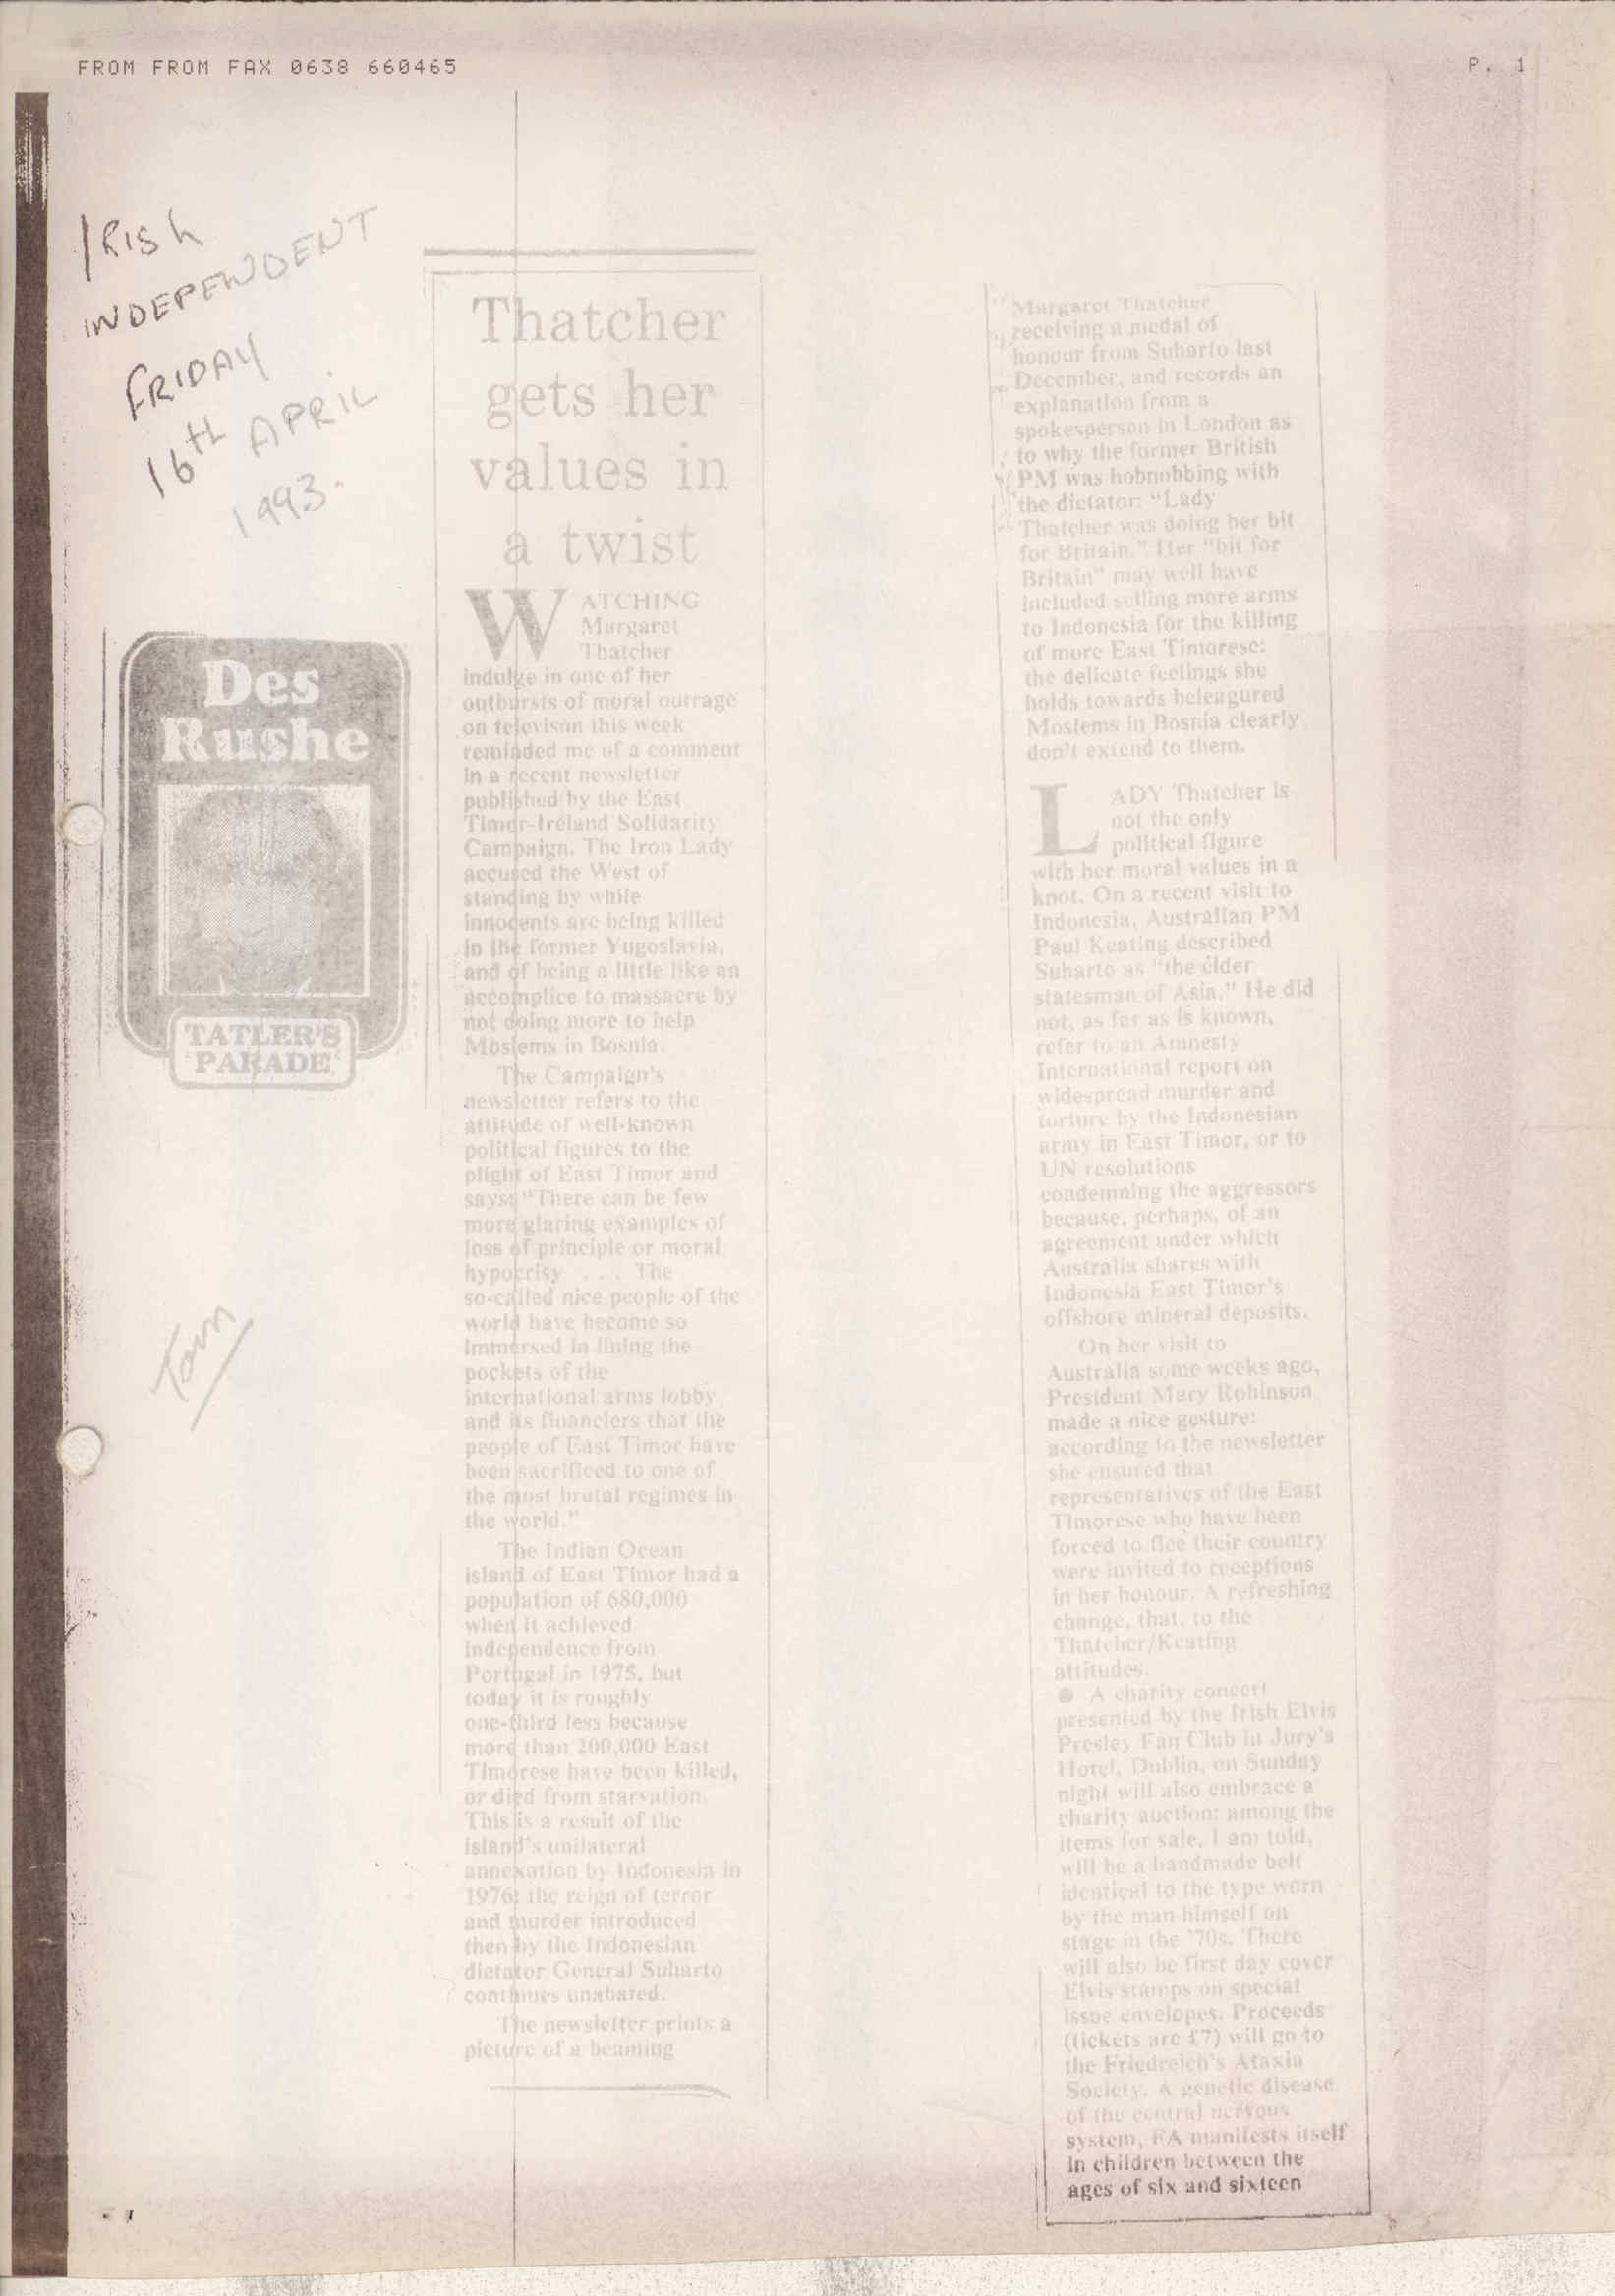 FROM FROM FAX 0638 660465
P. 1
IRISH
INDEPENDENT
FRIDAY
16TH APRIL
1993.
Des
Rushe
TATLER'S
PARADE
Tom
Thatcher
gets her
values in
a twist
WATCHING
Margaret
Thatcher
indulge in one of her
outbursts of moral outrage
on televison this week
reminded me of a comment
in a recent newsletter
published by the East
Timor-Ireland Solidarity
Campaign. The Iron Lady
accused the West of
standing by while
innocents are being killed
in the former Yugoslavia,
and of being a little like an
accomplice to massacre by
not doing more to help
Moslems in Bosnia.
The Campaign's
newsletter refers to the
attitude of well-known
political figures to the
plight of East Timor and
says: "There can be few
more glaring examples of
loss of principle or moral
hypocrisy . . . . The
so-called nice people of the
world have become so
immersed in lining the
pockets of the
international arms lobby
and its financiers that the
people of East Timor have
been sacrificed to one of
the most brutal regimes in
the world."
The Indian Ocean
island of East Timor had a
population of 680,000
when it achieved
independence from
Portugal in 1975, but
today it is roughly
one-third less because
more than 200,000 East
Timorese have been killed,
or died from starvation.
This is a result of the
island's unilateral
annexation by Indonesia in
1976: the reign of terror
and murder introduced
then by the Indonesian
dictator General Suharto
continues unabated.
The newsletter prints a
picture of a beaming
Margaret Thatcher
receiving a medal of
honour from Suharto last
December, and records an
explanation from a
spokesperson in London as
to why the former British
PM was hobnobbing with
the dictator: "Lady
Thatcher was doing her bit
for Britain." Her "bit for
Britain" may well have
included selling more arms
to Indonesia for the killing
of more East Timorese:
the delicate feelings she
holds towards beleagured
Moslems in Bosnia clearly
don't extend to them.
LADY Thatcher is
not the only
political figure
with her moral values in a
knot. On a recent visit to
Indonesia, Australian PM
Paul Keating described
Suharto as "the elder
statesman of Asia." He did
not, as far as is known,
refer to an Amnesty
International report on
widespread murder and
torture by the Indonesian
army in East Timor, or to
UN resolutions
condemning the aggressors
because, perhaps, of an
agreement under which
Australia shares with
Indonesia East Timor's
offshore mineral deposits.
On her visit to
Australia some weeks ago,
President Mary Robinson
made a nice gesture:
according to the newsletter
she ensured that
representatives of the East
Timorese who have been
forced to flee their country
were invited to receptions
in her honour. A refreshing
change, that, to the
Thatcher/Keating
attitudes.
● A charity concert
presented by the Irish Elvis
Presley Fan Club in Jury's
Hotel, Dublin, on Sunday
night will also embrace a
charity auction: among the
items for sale, I am told,
will be a handmade belt
identical to the type worn
by the man himself on
stage in the '70s. There
will also be first day cover
Elvis stamps on special
issue envelopes. Proceeds
(tickets are £7) will go to
the Friedreich's Ataxia
Society. A genetic disease
of the central nervous
system, FA manifests itself
in children between the
ages of six and sixteen